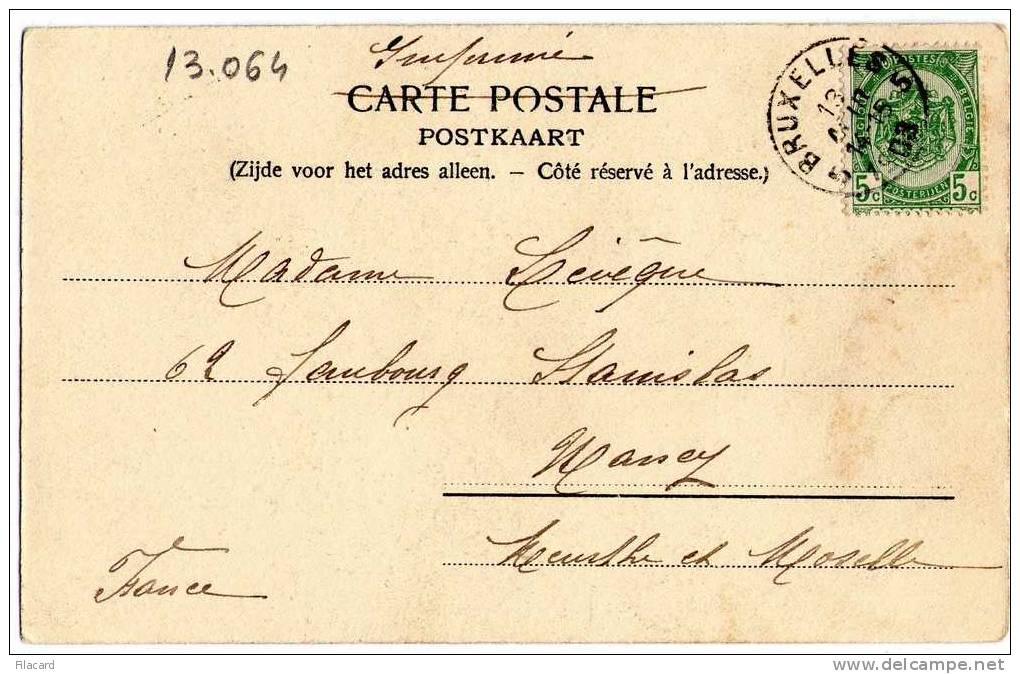 13.064
Imprimé
CARTE POSTALE
POSTKAART
(Zijde voor het adres alleen. – Côté réservé à l'adresse.)
BRUXELLES 5
1903
POSTES
BELGIQUE
POSTERIJEN
5c 5c
Madame Levêque
62 Faubourg Stanislas
Nancy
Meurthe et Moselle
France
Filacard
www.delcampe.net